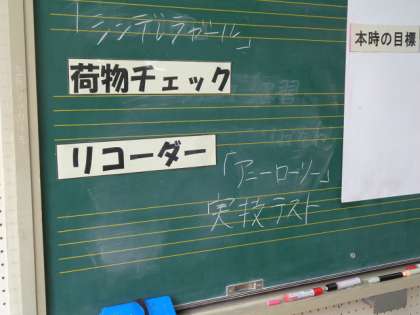 「シンデレラガール」
荷物チェック
本時の目標
リコーダー
「アニーローリー」
実技テスト